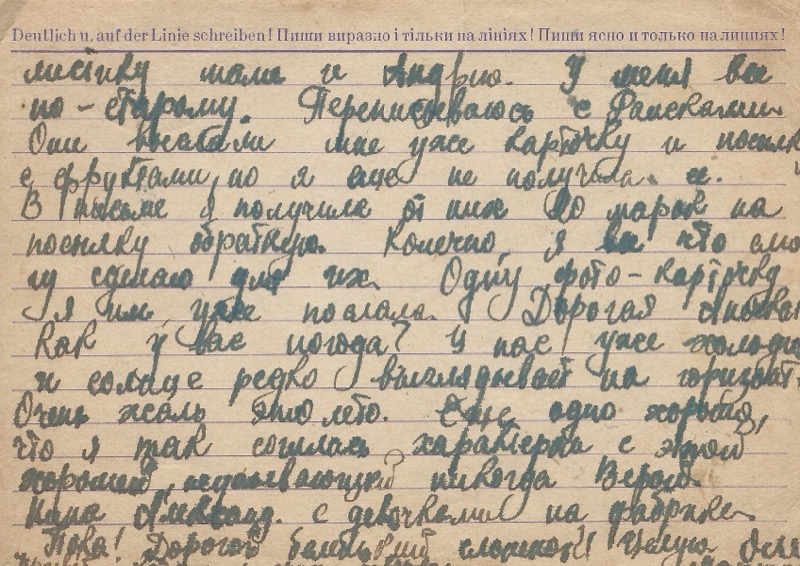 Deutlich u. auf der Linie schreiben! Пиши виразно і тільки на лініях! Пиши ясно и только на линиях!
мами и Андрю. У меня все
по-старому. Переписываюсь с
Они послали мне уже карточку и посылк
с фруктами, но я еще не получила.
В письме я получила от них 20 марок на
посылку обратную. Конечно, я все что смо
гу сделаю для их. Одну фото-карточку
я им уже послала. Дорогая
как у вас погода? У нас уже холодно
и солнце редко выглядывает на горизонт.
Очень жаль это лето. Еще одно хорошо,
что я так сошлась характером с этой
хорошей, никогда Верой.
Нина Александ. с девочками на фабрике.
Пока! Дорогой Целую